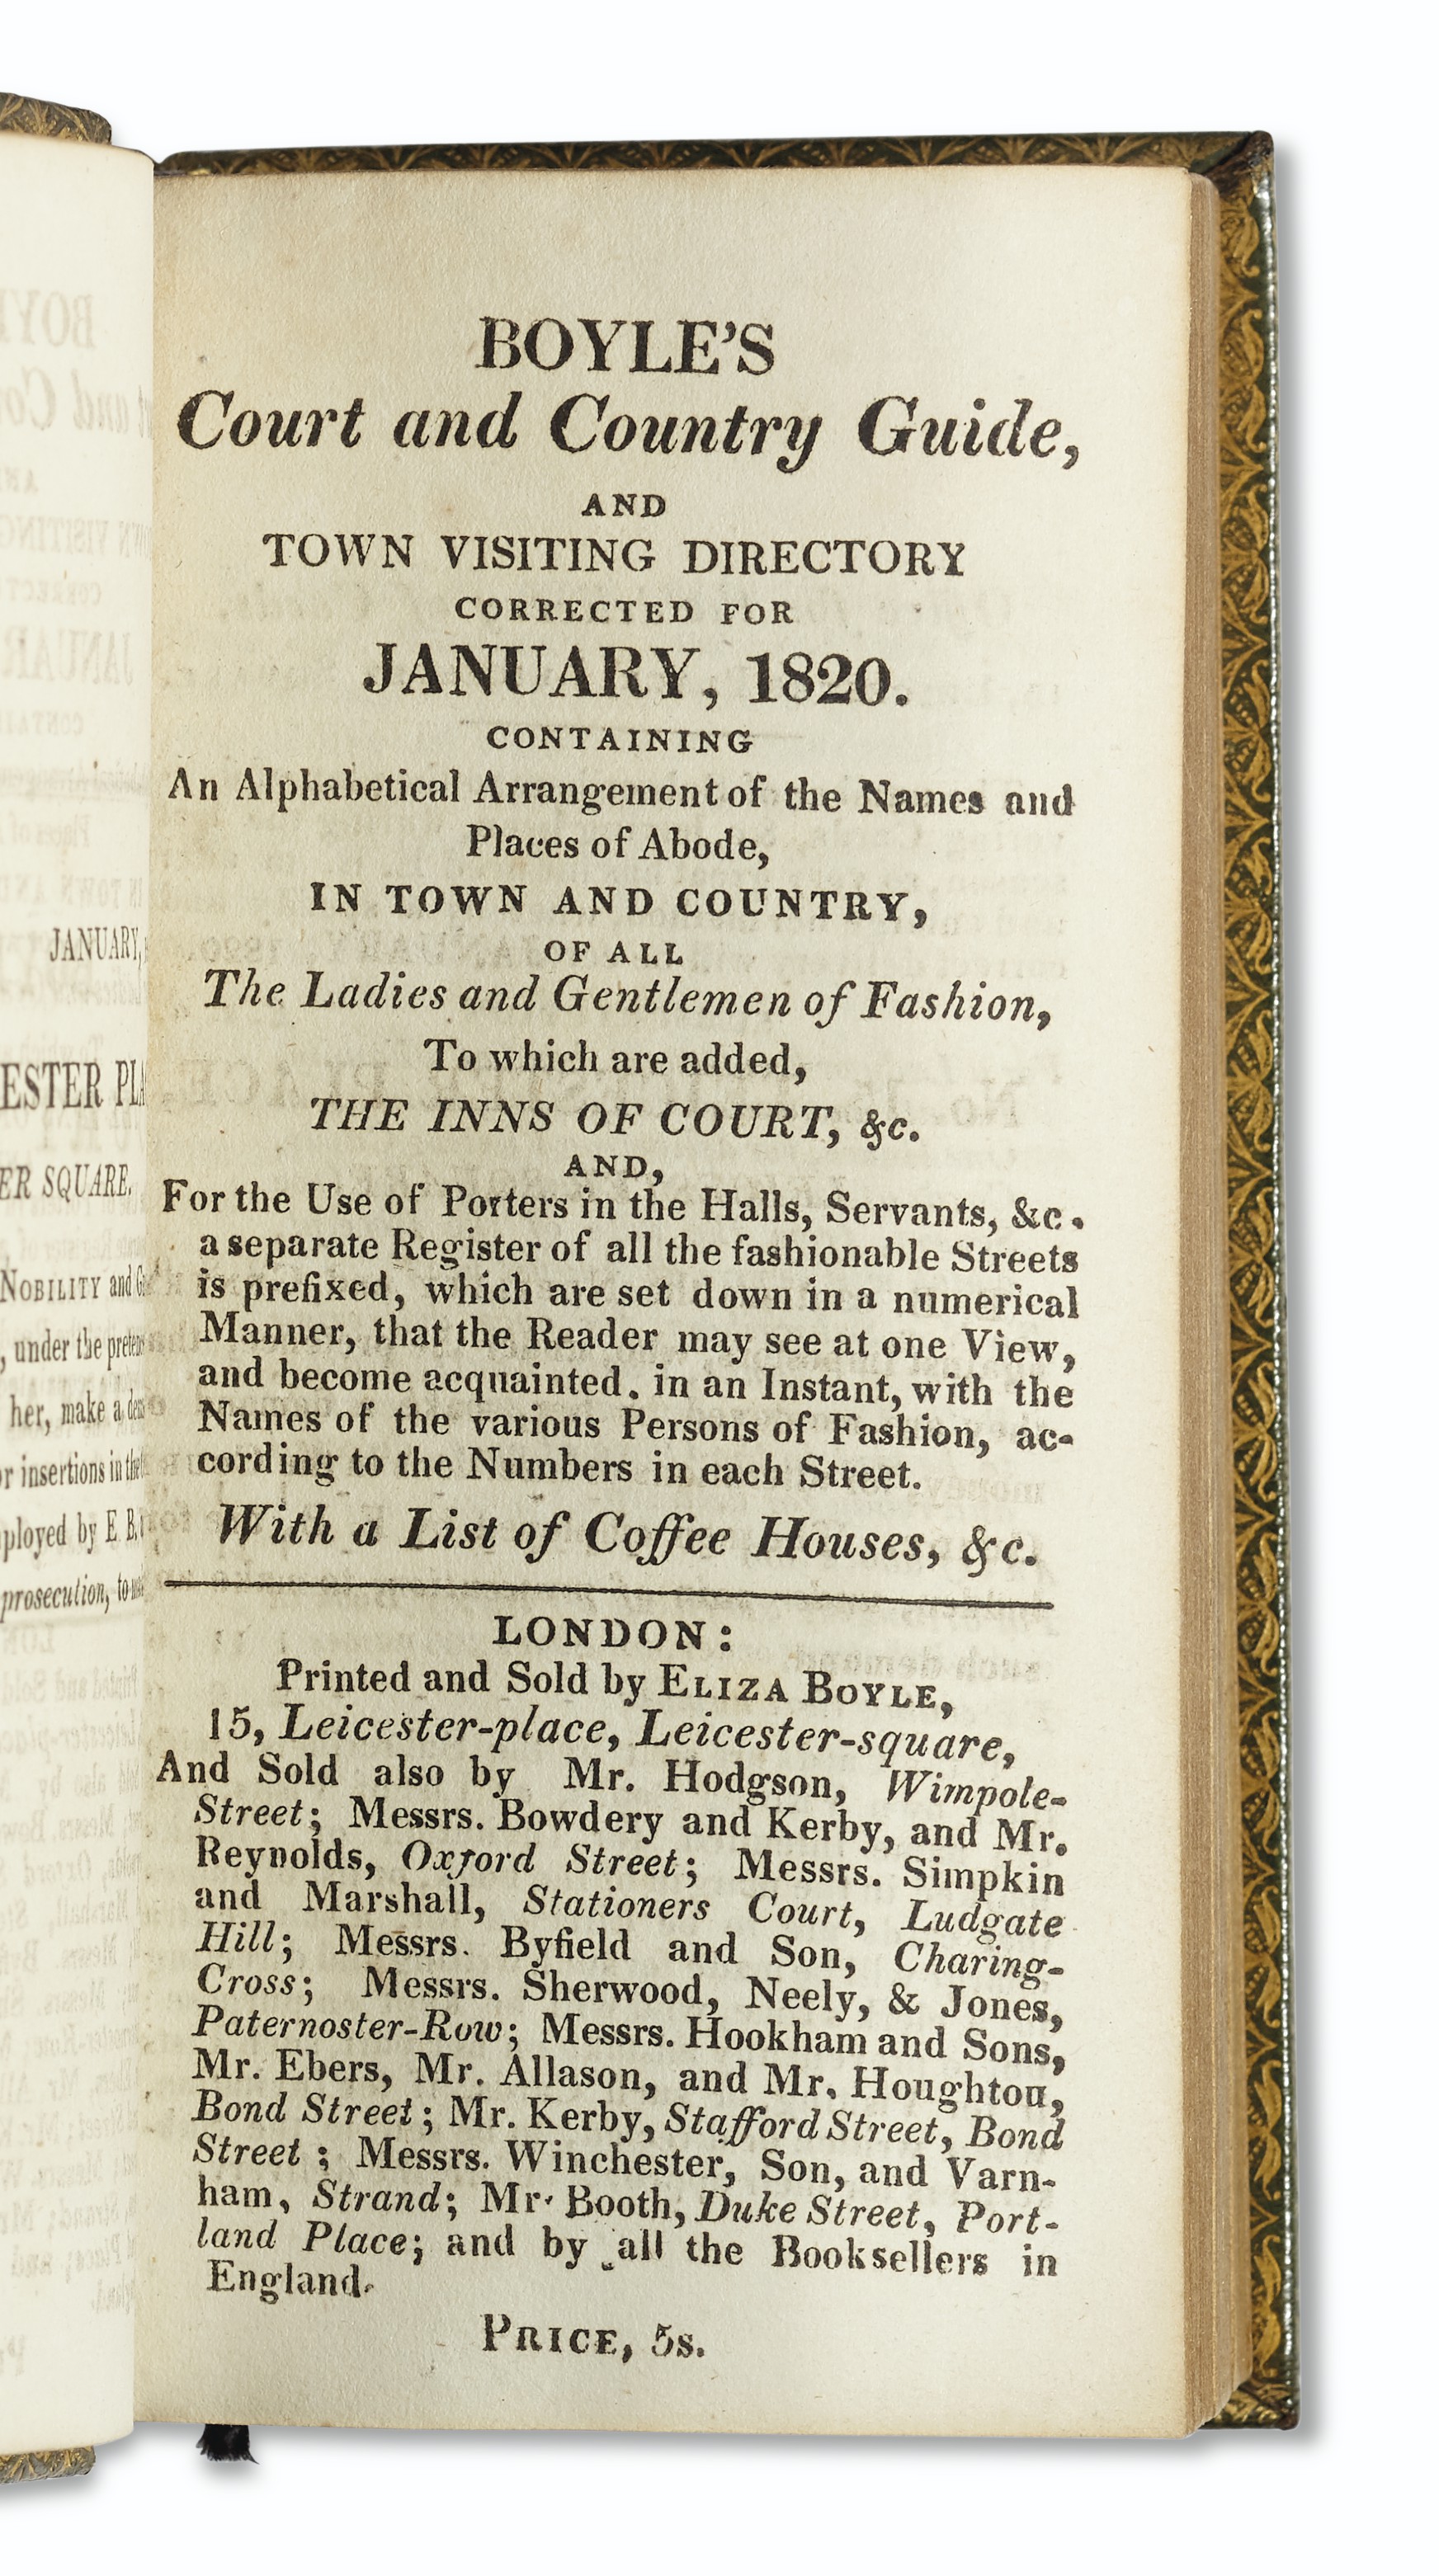 JANUARY,
ESTER PLA
ER SQUARE.
NOBILITY and
, under the
her, make a
or insertions in
ployed by E. B.
prosecution, to
BOYLE'S
Court and Country Guide,
AND
TOWN VISITING DIRECTORY
CORRECTED FOR
JANUARY, 1820.
CONTAINING
An Alphabetical Arrangement of the Names and
Places of Abode,
IN TOWN AND COUNTRY,
OF ALL
The Ladies and Gentlemen of Fashion,
To which are added,
THE INNS OF COURT, &c.
AND,
For the Use of Porters in the Halls, Servants, &c.
a separate Register of all the fashionable Streets
is prefixed, which are set down in a numerical
Manner, that the Reader may see at one View,
and become acquainted. in an Instant, with the
Names of the various Persons of Fashion, ac-
cording to the Numbers in each Street.
With a List of Coffee Houses, &c.
LONDON:
Printed and Sold by ELIZA BOYLE,
15, Leicester-place, Leicester-square,
And Sold also by Mr. Hodgson, Wimpole-
Street; Messrs. Bowdery and Kerby, and Mr.
Reynolds, Oxford Street; Messrs. Simpkin
and Marshall, Stationers Court, Ludgate
Hill; Messrs. Byfield and Son, Charing-
Cross; Messrs. Sherwood, Neely, & Jones,
Paternoster-Row; Messrs. Hookham and Sons,
Mr. Ebers, Mr. Allason, and Mr. Houghton,
Bond Street; Mr. Kerby, Stafford Street, Bond
Street; Messrs. Winchester, Son, and Varn-
ham, Strand; Mr. Booth, Duke Street, Port-
land Place; and by all the Booksellers in
England.
PRICE, 5s.